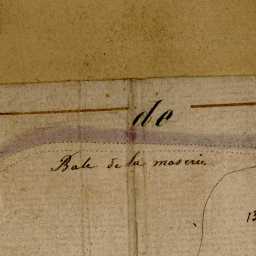 de
Bale de la maserie
13